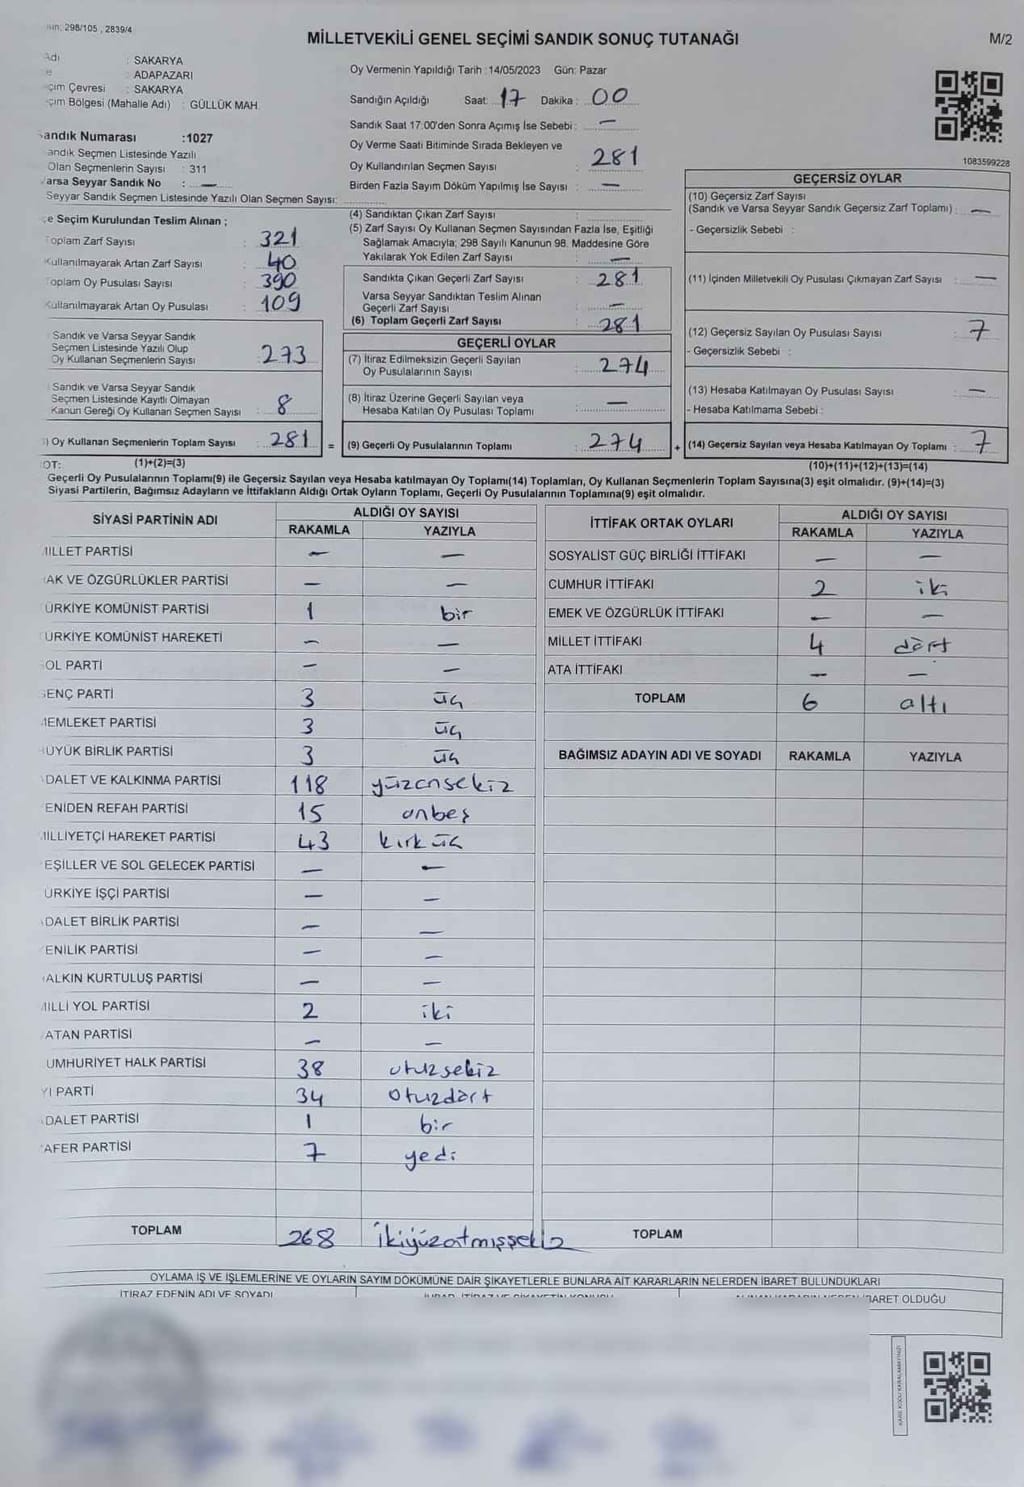 298/105 , 2839/4
MİLLETVEKİLİ GENEL SEÇİMİ SANDIK SONUÇ TUTANAĞI
M/2
: SAKARYA
: ADAPAZARI
Çevresi : SAKARYA
Bölgesi (Mahalle Adı) : GÜLLÜK MAH.
Oy Vermenin Yapıldığı Tarih :14/05/2023 Gün: Pazar
Sandığın Açıldığı Saat: 17 Dakika : 00
Sandık Saat 17:00'den Sonra Açımış İse Sebebi : —
Oy Verme Saati Bitiminde Sırada Bekleyen ve
Oy Kullandırılan Seçmen Sayısı : 281
Birden Fazla Sayım Döküm Yapılmış İse Sayısı : —
andık Numarası :1027
andık Seçmen Listesinde Yazılı
Olan Seçmenlerin Sayısı : 311
arsa Seyyar Sandık No : —
Seyyar Sandık Seçmen Listesinde Yazılı Olan Seçmen Sayısı:
e Seçim Kurulundan Teslim Alınan ;
oplam Zarf Sayısı : 321
ullanılmayarak Artan Zarf Sayısı : 40
oplam Oy Pusulası Sayısı : 390
ullanılmayarak Artan Oy Pusulası : 109
Sandık ve Varsa Seyyar Sandık
Seçmen Listesinde Yazılı Olup
Oy Kullanan Seçmenlerin Sayısı : 273
Sandık ve Varsa Seyyar Sandık
Seçmen Listesinde Kayıtlı Olmayan
Kanun Gereği Oy Kullanan Seçmen Sayısı : 8
) Oy Kullanan Seçmenlerin Toplam Sayısı : 281 =
(1)+(2)=(3)
(4) Sandıktan Çıkan Zarf Sayısı :
(5) Zarf Sayısı Oy Kullanan Seçmen Sayısından Fazla İse, Eşitliği
Sağlamak Amacıyla; 298 Sayılı Kanunun 98. Maddesine Göre
Yakılarak Yok Edilen Zarf Sayısı : —
Sandıkta Çıkan Geçerli Zarf Sayısı : 281
Varsa Seyyar Sandıktan Teslim Alınan
Geçerli Zarf Sayısı : —
(6) Toplam Geçerli Zarf Sayısı : 281
GEÇERLİ OYLAR
(7) İtiraz Edilmeksizin Geçerli Sayılan
Oy Pusulalarının Sayısı : 274
(8) İtiraz Üzerine Geçerli Sayılan veya
Hesaba Katılan Oy Pusulası Toplamı : —
(9) Geçerli Oy Pusulalarının Toplamı : 274 +
1083599228
GEÇERSİZ OYLAR
(10) Geçersiz Zarf Sayısı
(Sandık ve Varsa Seyyar Sandık Geçersiz Zarf Toplamı) : —
- Geçersizlik Sebebi :
(11) İçinden Milletvekili Oy Pusulası Çıkmayan Zarf Sayısı : —
(12) Geçersiz Sayılan Oy Pusulası Sayısı : 7
- Geçersizlik Sebebi :
(13) Hesaba Katılmayan Oy Pusulası Sayısı : —
- Hesaba Katılmama Sebebi :
(14) Geçersiz Sayılan veya Hesaba Katılmayan Oy Toplamı : 7
(10)+(11)+(12)+(13)=(14)
OT:
Geçerli Oy Pusulalarının Toplamı(9) ile Geçersiz Sayılan veya Hesaba katılmayan Oy Toplamı(14) Toplamları, Oy Kullanan Seçmenlerin Toplam Sayısına(3) eşit olmalıdır. (9)+(14)=(3)
Siyasi Partilerin, Bağımsız Adayların ve İttifakların Aldığı Ortak Oyların Toplamı, Geçerli Oy Pusulalarının Toplamına(9) eşit olmalıdır.
SİYASİ PARTİNİN ADI ALDIĞI OY SAYISI
RAKAMLA YAZIYLA
MİLLET PARTİSİ — —
AK VE ÖZGÜRLÜKLER PARTİSİ — —
ÜRKİYE KOMÜNİST PARTİSİ 1 bir
ÜRKİYE KOMÜNİST HAREKETİ — —
OL PARTİ — —
ENÇ PARTİ 3 üç
MEMLEKET PARTİSİ 3 üç
ÜYÜK BİRLİK PARTİSİ 3 üç
DALET VE KALKINMA PARTİSİ 118 yüzonsekiz
ENİDEN REFAH PARTİSİ 15 onbeş
MİLLİYETÇİ HAREKET PARTİSİ 43 kırk üç
EŞİLLER VE SOL GELECEK PARTİSİ — —
ÜRKİYE İŞÇİ PARTİSİ — —
DALET BİRLİK PARTİSİ — —
ENİLİK PARTİSİ — —
ALKIN KURTULUŞ PARTİSİ — —
MİLLİ YOL PARTİSİ 2 iki
ATAN PARTİSİ — —
UMHURİYET HALK PARTİSİ 38 otuzsekiz
Yİ PARTİ 34 otuzdört
DALET PARTİSİ 1 bir
AFER PARTİSİ 7 yedi
TOPLAM 268 ikiyüzatmışsekiz
İTTİFAK ORTAK OYLARI ALDIĞI OY SAYISI
RAKAMLA YAZIYLA
SOSYALİST GÜÇ BİRLİĞİ İTTİFAKI — —
CUMHUR İTTİFAKI 2 iki
EMEK VE ÖZGÜRLÜK İTTİFAKI — —
MİLLET İTTİFAKI 4 dört
ATA İTTİFAKI — —
TOPLAM 6 altı
BAĞIMSIZ ADAYIN ADI VE SOYADI RAKAMLA YAZIYLA
TOPLAM
OYLAMA İŞ VE İŞLEMLERİNE VE OYLARIN SAYIM DÖKÜMÜNE DAİR ŞİKAYETLERLE BUNLARA AİT KARARLARIN NELERDEN İBARET BULUNDUKLARI
İTİRAZ EDENİN ADI VE SOYADI
OLDUĞU